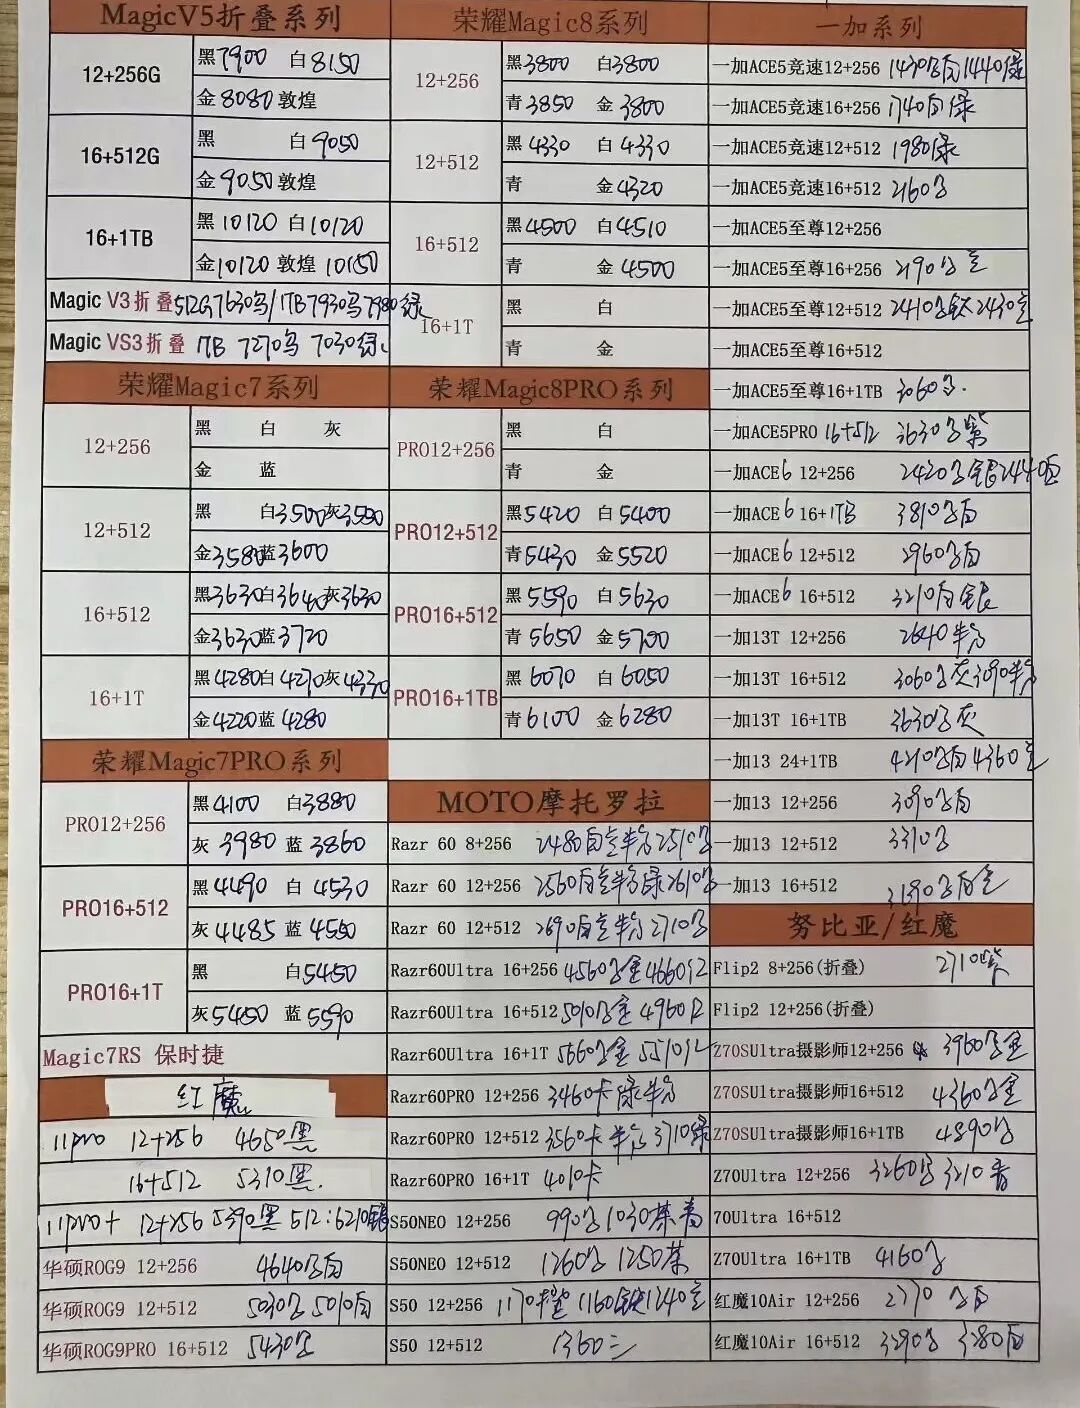 MagicV5折叠系列
12+256G
黑7900 白8150
金8080敦煌
16+512G
黑 白9050
金9050敦煌
16+1TB
黑10120 白10120
金10120 敦煌 10150
Magic V3折叠512G7630乌/1TB7930乌7980绿
Magic VS3折叠 1TB 7270乌 7030绿
荣耀Magic7系列
12+256
黑 白 灰
金 蓝
12+512
黑 白3500灰3550
金3580蓝3600
16+512
黑3630白3640灰3630
金3630蓝3720
16+1T
黑4280白4270灰4330
金4220蓝4280
荣耀Magic7PRO系列
PRO12+256
黑4100 白3880
灰 3980 蓝 3860
PRO16+512
黑4490 白 4530
灰4485 蓝 4550
PRO16+1T
黑 白5450
灰5450 蓝 5590
Magic7RS 保时捷
红魔
11pro 12+256 4650黑
16+512 5310黑.
11pro+ 12+256 5390黑 512:6210
华硕ROG9 12+256 4640白
华硕ROG9 12+512 5030 5010白
华硕ROG9PRO 16+512 5430
荣耀Magic8系列
12+256
黑3800 白3800
青3850 金3800
12+512
黑4330 白4330
青 金4320
16+512
黑4500 白4510
青 金4500
16+1T
黑 白
青 金
荣耀Magic8PRO系列
PRO12+256
黑 白
青 金
PRO12+512
黑5420 白5400
青5430 金5520
PRO16+512
黑5590 白5630
青5650 金5700
PRO16+1TB
黑6070 白6050
青6100 金6280
MOTO摩托罗拉
Razr 60 8+256 2480白 2510
Razr 60 12+256 2560白 绿2610
Razr 60 12+512 2690白 2710
Razr60Ultra 16+256 4560 4660红
Razr60Ultra 16+512 5010 4960红
Razr60Ultra 16+1T 5660 5510红
Razr60PRO 12+256 3460卡 绿
Razr60PRO 12+512 3560卡 3710绿
Razr60PRO 16+1T 4010卡
S50NEO 12+256 990 1030茶青
S50NEO 12+512 1260 1250茶
S50 12+256 1170 1160 1240
S50 12+512 1360
一加系列
一加ACE5竞速12+256 1430白1440绿
一加ACE5竞速16+256 1740白绿
一加ACE5竞速12+512 1980绿
一加ACE5竞速16+512 2160
一加ACE5至尊12+256
一加ACE5至尊16+256 2190
一加ACE5至尊12+512 2410钛2430
一加ACE5至尊16+512
一加ACE5至尊16+1TB 3060
一加ACE5PRO 16+512 3630紫
一加ACE6 12+256 2420银2440白
一加ACE6 16+1TB 3810白
一加ACE6 12+512 2960白
一加ACE6 16+512 3210白银
一加13T 12+256 2640
一加13T 16+512 3060灰3090
一加13T 16+1TB 3630灰
一加13 24+1TB 4210白4360
一加13 12+256 3090白
一加13 12+512 3310
一加13 16+512 白
努比亚/红魔
Flip2 8+256(折叠) 2710紫
Flip2 12+256(折叠)
Z70SUltra摄影师12+256 3960
Z70SUltra摄影师16+512 4360
Z70SUltra摄影师16+1TB 4890
Z70Ultra 12+256 3260 3210青
70Ultra 16+512
Z70Ultra 16+1TB 4160
红魔10Air 12+256 2770 白
红魔10Air 16+512 3290 3280白